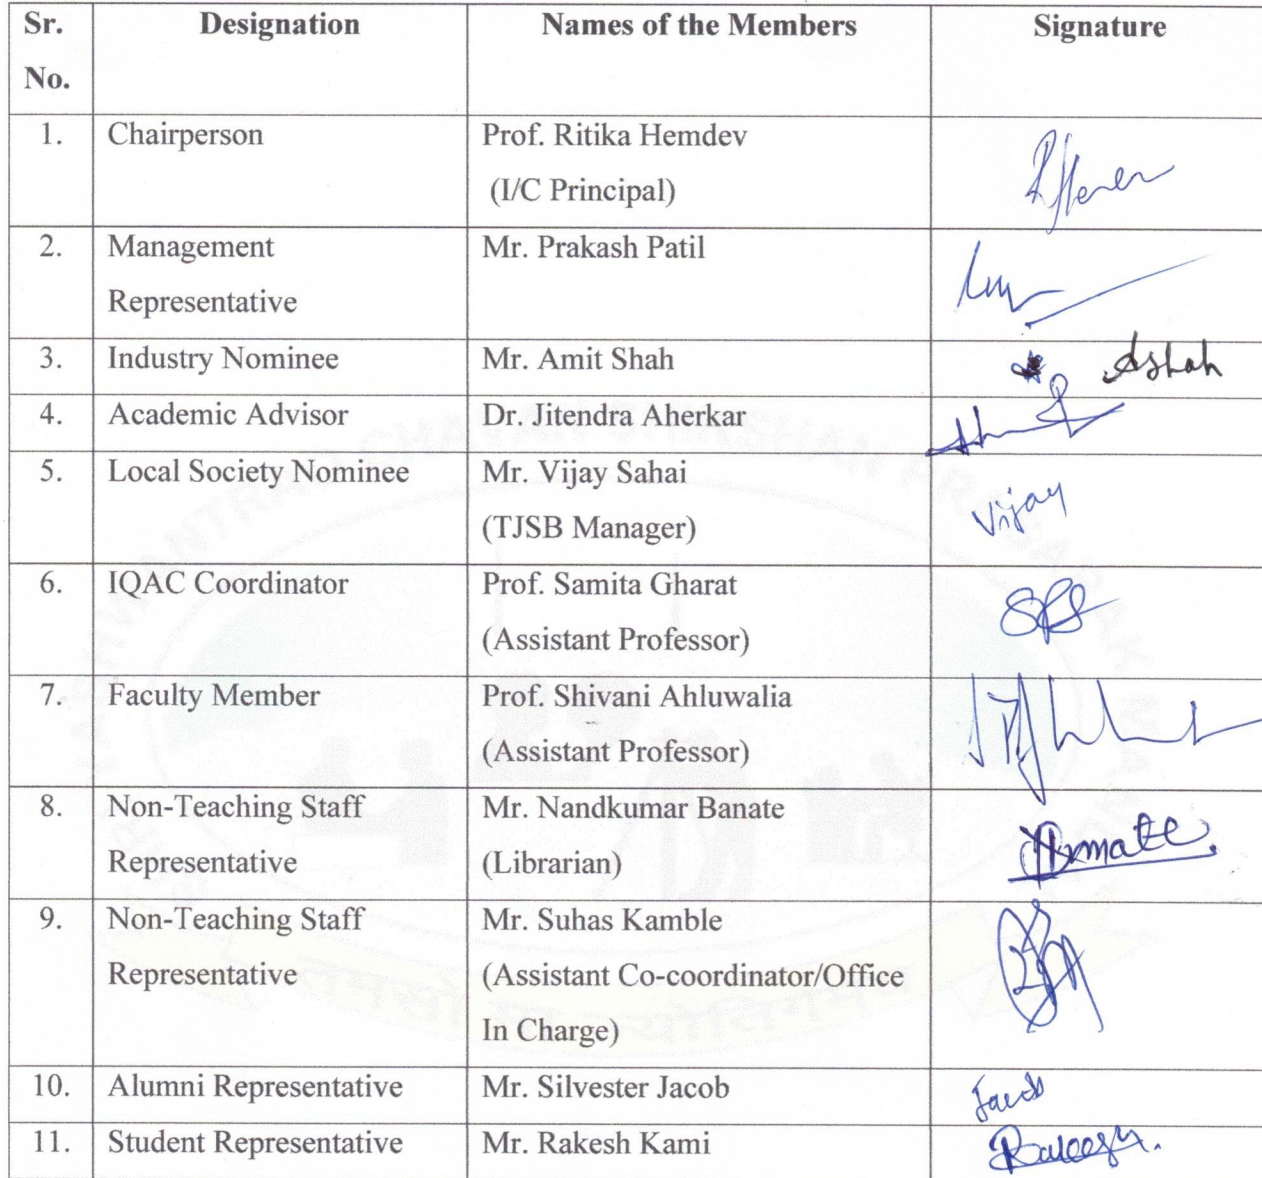 Sr. No. Designation Names of the Members Signature
1. Chairperson Prof. Ritika Hemdev
(I/C Principal)
2. Management Mr. Prakash Patil
Representative
3. Industry Nominee Mr. Amit Shah AShah
4. Academic Advisor Dr. Jitendra Aherkar
5. Local Society Nominee Mr. Vijay Sahai
(TJSB Manager) Vijay
6. IQAC Coordinator Prof. Samita Gharat
(Assistant Professor)
7. Faculty Member Prof. Shivani Ahluwalia
(Assistant Professor)
8. Non-Teaching Staff Mr. Nandkumar Banate
Representative (Librarian)
9. Non-Teaching Staff Mr. Suhas Kamble
Representative (Assistant Co-coordinator/Office
In Charge)
10. Alumni Representative Mr. Silvester Jacob Jacob
11. Student Representative Mr. Rakesh Kami